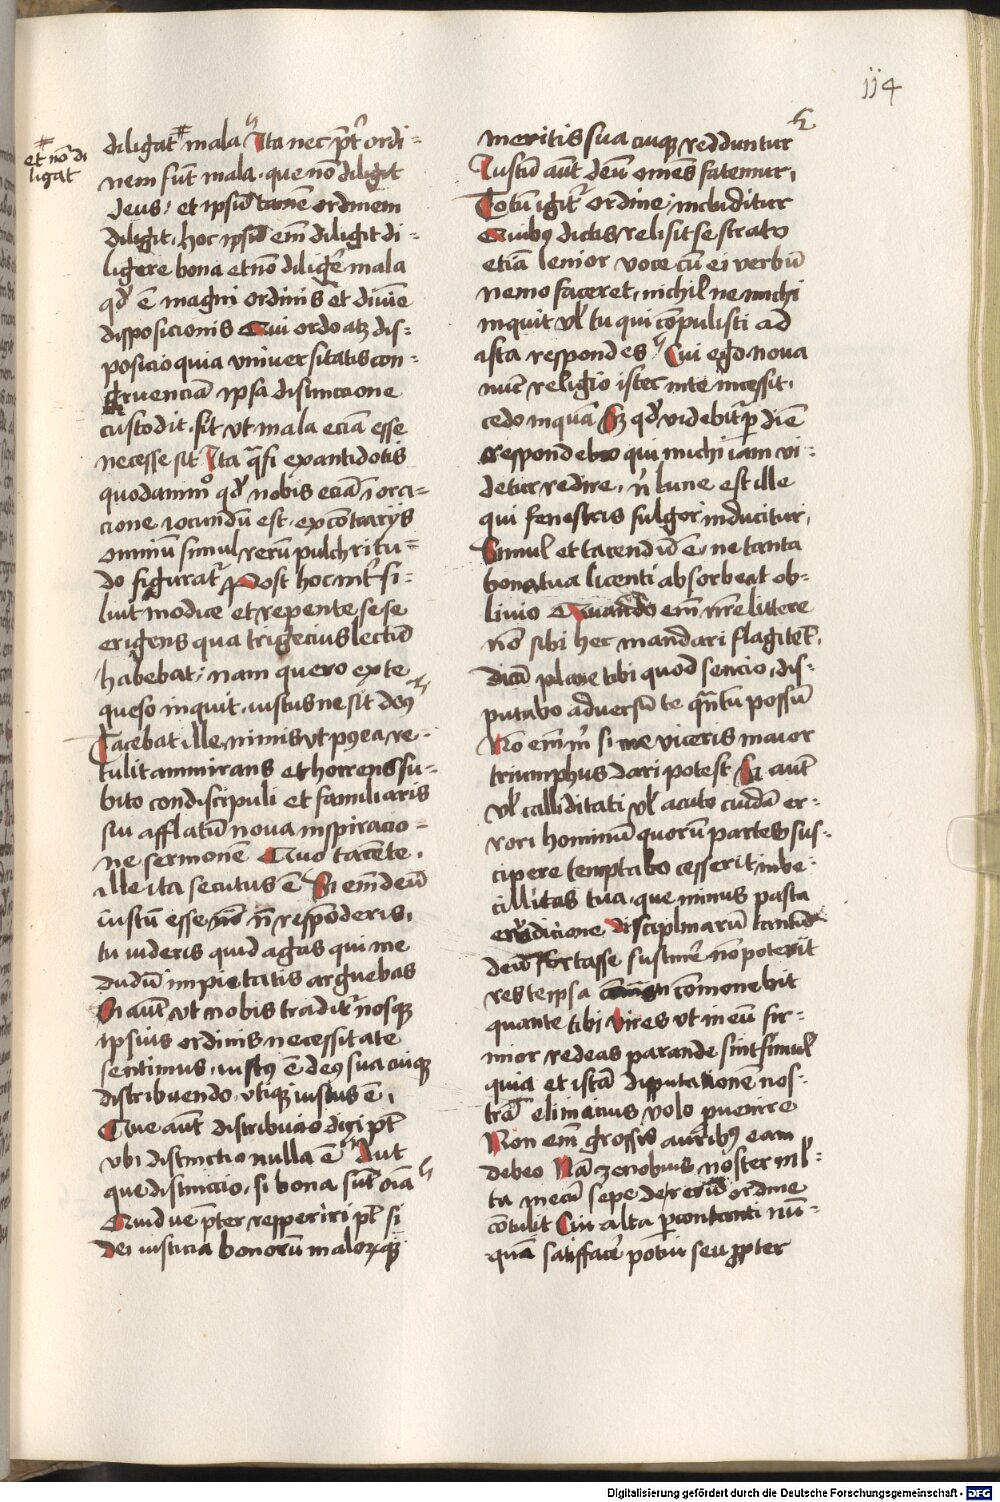 114
et nō di
ligat
diligat mala Ita nec p̄tʳ ordi=
nem sūt mala · que nō diligit
deus / et ipsū tamē ordinem
diligit · hoc ipsū em̄ diligit di=
ligere bona et nō diligēʳ mala
qđ ē magni ordinis et diuīe
disposicionis Qui ordo atqꝫ dis=
posicio quia vniuersitatis con=
gruenciā ipsa distinccione
custodit · fit vt mala eciā esse
necesse sit Ita q̄si ex antidotis
quodāmº qđ nobis eciā ī orā=
cione iocundū est · ex cōtrarijs
omniū simul rerū pulchritu=
do figuratʳ Post hoc intʳ si=
luit modice et repente sese
erigens qua trigecius lectū
habebat / nam quero ex te
queso inquit · iustus ne sit deꝰ
Tacebat ille nimis vt pꝰea re=
tulit ammirans et horrens su=
bito condiscipuli et familiaris
sui afflatū noua inspiracio=
ne sermonē Quo tacēte ·
ille ita secutus ē Si em̄ deū
iustū esse nō respōderis ·
tu videris quid agas qui me
dudū impietatis arguebas
Si aūt vt nobis traditʳ nosqꝫ
ipsius ordinis necessitate
sentimus · iustꝰ ē deꝰ sua cuiqꝫ
distribuendo · vtiqꝫ iustus ē ·
Que aūt distribucio dici pt̄
vbi distinctio nulla ē Aut
que distinccio · si bona sūt oīa
Quid ve p̄ter repperiri pt̄ si
dei iusticia bonorū malorūqꝫ
meritis sua cuiqꝫ redduntur
Iustū aūt deū omēs fatemur ·
Totū igitʳ ordine includitur
Quibꝰ dictis relisit se strato
etiā lenior voce cū ei verbū
nemo faceret · nichil ne michi
inquit vł tu qui cōpulisti ad
ista respondes Cui ego noua
nūc religio istec in te incessit ·
cedo inquā Sꝫ qđ videbitʳ p diē
respondebo qui michi iam vi=
detur redire · nⁱ lune est ille
qui fenestris fulgor inducitur ·
Simul et tacendū ē · ne tanta
bona tua licenti absorbeat ob=
liuio Quando em̄ nr̄e littere
nō sibi hec mandari flagitēt ·
dicā plane tibi quod sencio · dis=
putabo adversū te q̄ntū possū
Nō em̄ mⁱ si me viceris maior
triumphus dari potest Si aūt
vł calliditati vł acuto cuidā er=
rori hominū quorū partes sus=
cipere temptabo cesserit inbe=
cillitas tua · que minus pasta
erudicione disciplinarū tantū
deū fortasse sustinēʳ nō poterit
res te ipsa cōmonebit
quante tibi vires vt in eū fir=
mior redeas parande sint simul
quia et istā disputacionē nos=
trā elimacius volo p̱uenire
Non em̄ grossis auribꝰ eam
debeo Nā zenobius noster ml̄=
ta mecū sepe de rerū ordine
cōtulit Cui alta p̱contanti nū=
quā satisfacēʳ potui seu ꝓpter
Digitalisierung gefördert durch die Deutsche Forschungsgemeinschaft - DFG